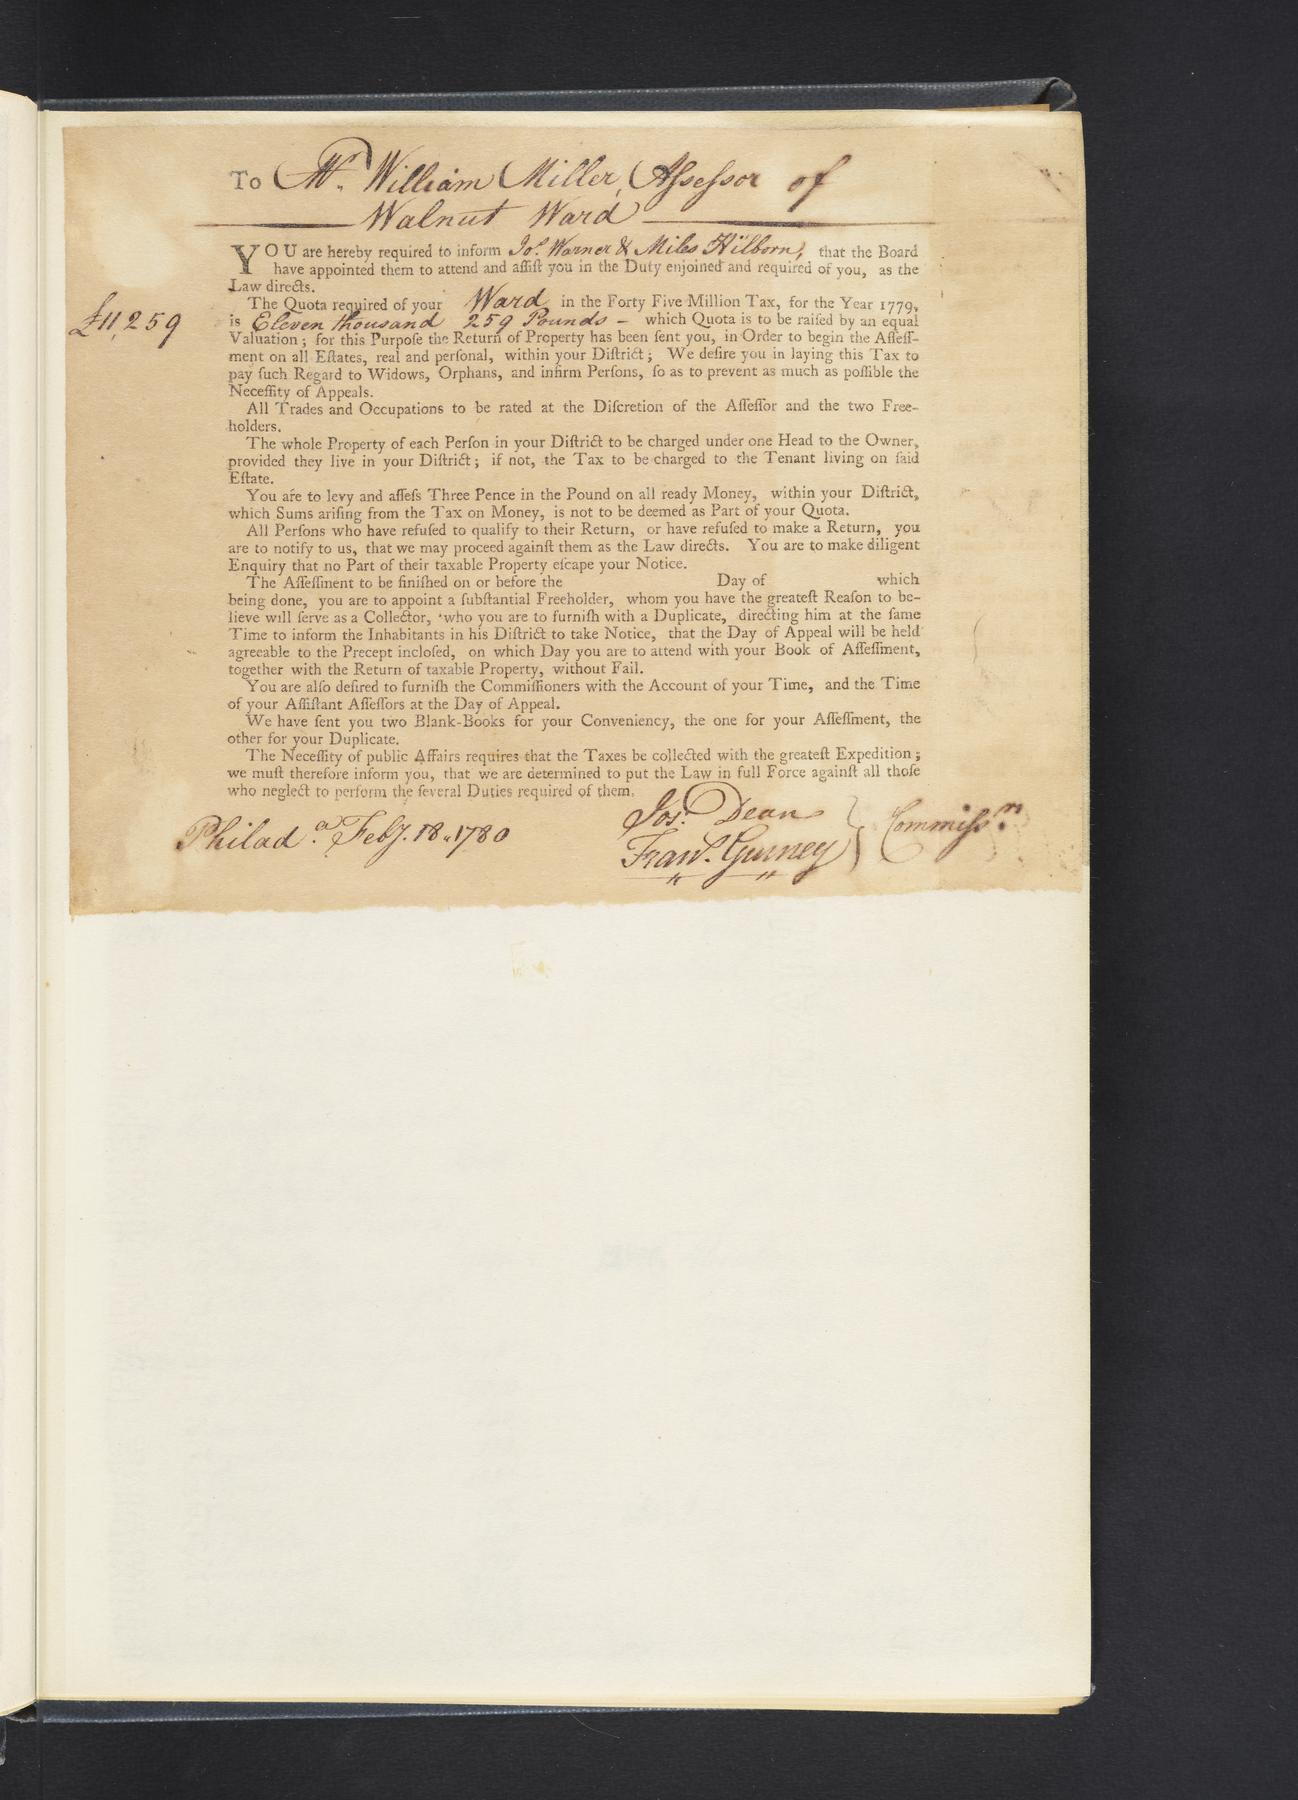 To Mr. William Miller, Aſseſsor of
Walnut Ward
YOU are hereby required to inform Jos. Warner & Miles Hilborn, that the Board
have appointed them to attend and aſſiſt you in the Duty enjoined and required of you, as the
Law directs.
The Quota required of your Ward in the Forty Five Million Tax, for the Year 1779,
£11,259 is Eleven thousand 259 Pounds - which Quota is to be raiſed by an equal
Valuation; for this Purpoſe the Return of Property has been ſent you, in Order to begin the Aſſeſſ-
ment on all Eſtates, real and perſonal, within your Diſtrict; We deſire you in laying this Tax to
pay ſuch Regard to Widows, Orphans, and infirm Perſons, ſo as to prevent as much as poſſible the
Neceſſity of Appeals.
All Trades and Occupations to be rated at the Diſcretion of the Aſſeſſor and the two Free-
holders.
The whole Property of each Perſon in your Diſtrict to be charged under one Head to the Owner,
provided they live in your Diſtrict; if not, the Tax to be charged to the Tenant living on ſaid
Eſtate.
You are to levy and aſſeſs Three Pence in the Pound on all ready Money, within your Diſtrict,
which Sums ariſing from the Tax on Money, is not to be deemed as Part of your Quota.
All Perſons who have refuſed to qualify to their Return, or have refuſed to make a Return, you
are to notify to us, that we may proceed againſt them as the Law directs. You are to make diligent
Enquiry that no Part of their taxable Property eſcape your Notice.
The Aſſeſſment to be finiſhed on or before the Day of which
being done, you are to appoint a ſubſtantial Freeholder, whom you have the greateſt Reaſon to be-
lieve will ſerve as a Collector, who you are to furniſh with a Duplicate, directing him at the ſame
Time to inform the Inhabitants in his Diſtrict to take Notice, that the Day of Appeal will be held
agreeable to the Precept incloſed, on which Day you are to attend with your Book of Aſſeſſment,
together with the Return of taxable Property, without Fail.
You are alſo deſired to furniſh the Commiſſioners with the Account of your Time, and the Time
of your Aſſiſtant Aſſeſſors at the Day of Appeal.
We have ſent you two Blank-Books for your Conveniency, the one for your Aſſeſſment, the
other for your Duplicate.
The Neceſſity of public Affairs requires that the Taxes be collected with the greateſt Expedition;
we muſt therefore inform you, that we are determined to put the Law in full Force againſt all thoſe
who neglect to perform the ſeveral Duties required of them.
Jos. Dean
Philada. Feby. 18. 1780
Frans. Gurney } Commiſsrs